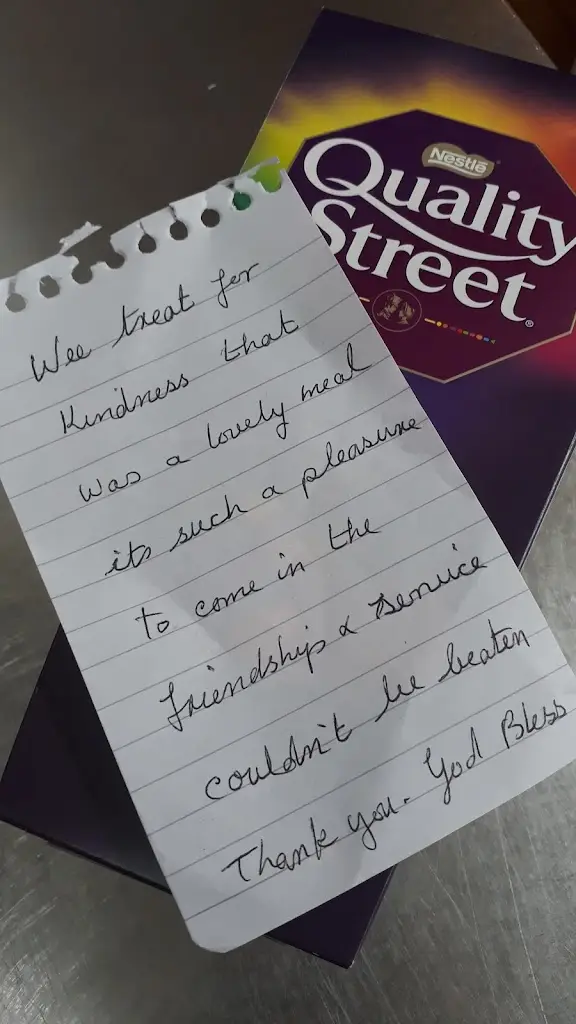 Nestlé
Quality
Street
Wee treat for
Kindness that
was a lovely meal
its such a pleasure
to come in the
friendship & service
couldn't be beaten
Thank you. God Bless